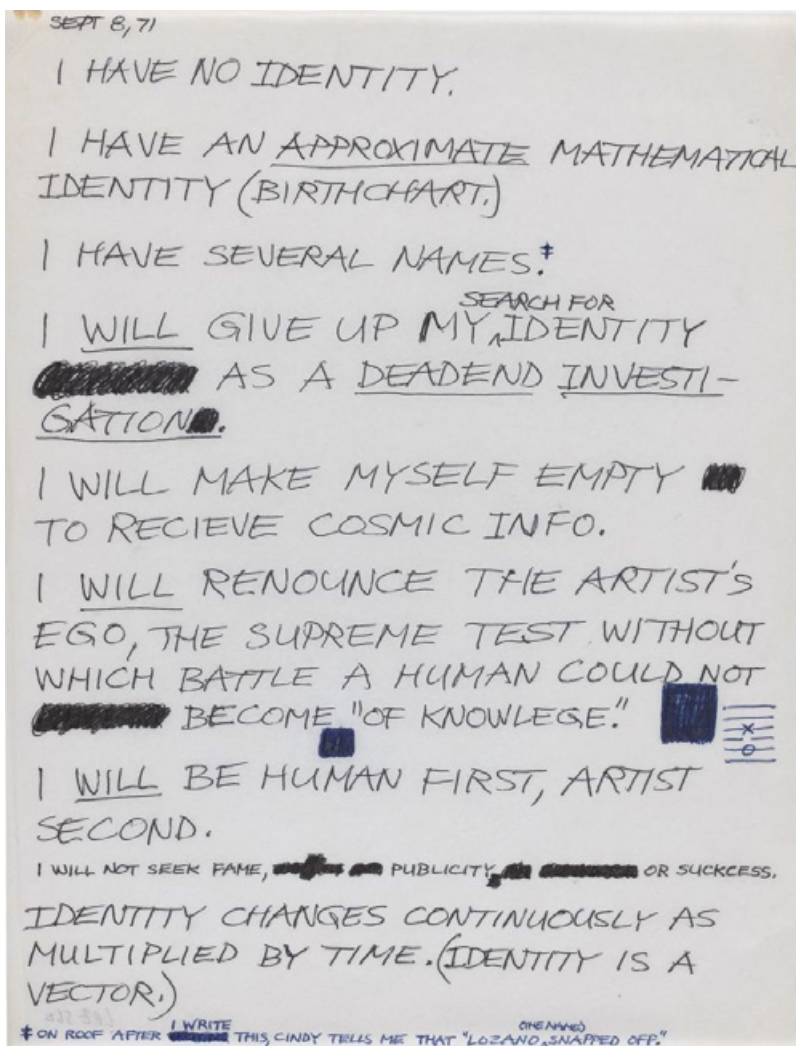 SEPT 8, 71
I HAVE NO IDENTITY.
I HAVE AN APPROXIMATE MATHEMATICAL
IDENTITY (BIRTHCHART.)
I HAVE SEVERAL NAMES.‡
SEARCH FOR
I WILL GIVE UP MY ‸ IDENTITY
AS A DEADEND INVESTI-
GATION.
I WILL MAKE MYSELF EMPTY
TO RECIEVE COSMIC INFO.
I WILL RENOUNCE THE ARTIST'S
EGO, THE SUPREME TEST WITHOUT
WHICH BATTLE A HUMAN COULD NOT
BECOME "OF KNOWLEGE."
X
O
I WILL BE HUMAN FIRST, ARTIST
SECOND.
I WILL NOT SEEK FAME, PUBLICITY, OR SUCKCESS.
IDENTITY CHANGES CONTINUOUSLY AS
MULTIPLIED BY TIME. (IDENTITY IS A
VECTOR.)
I WRITE (THE NAME)
‡ ON ROOF AFTER THIS, CINDY TELLS ME THAT "LOZANO ‸ SNAPPED OFF."